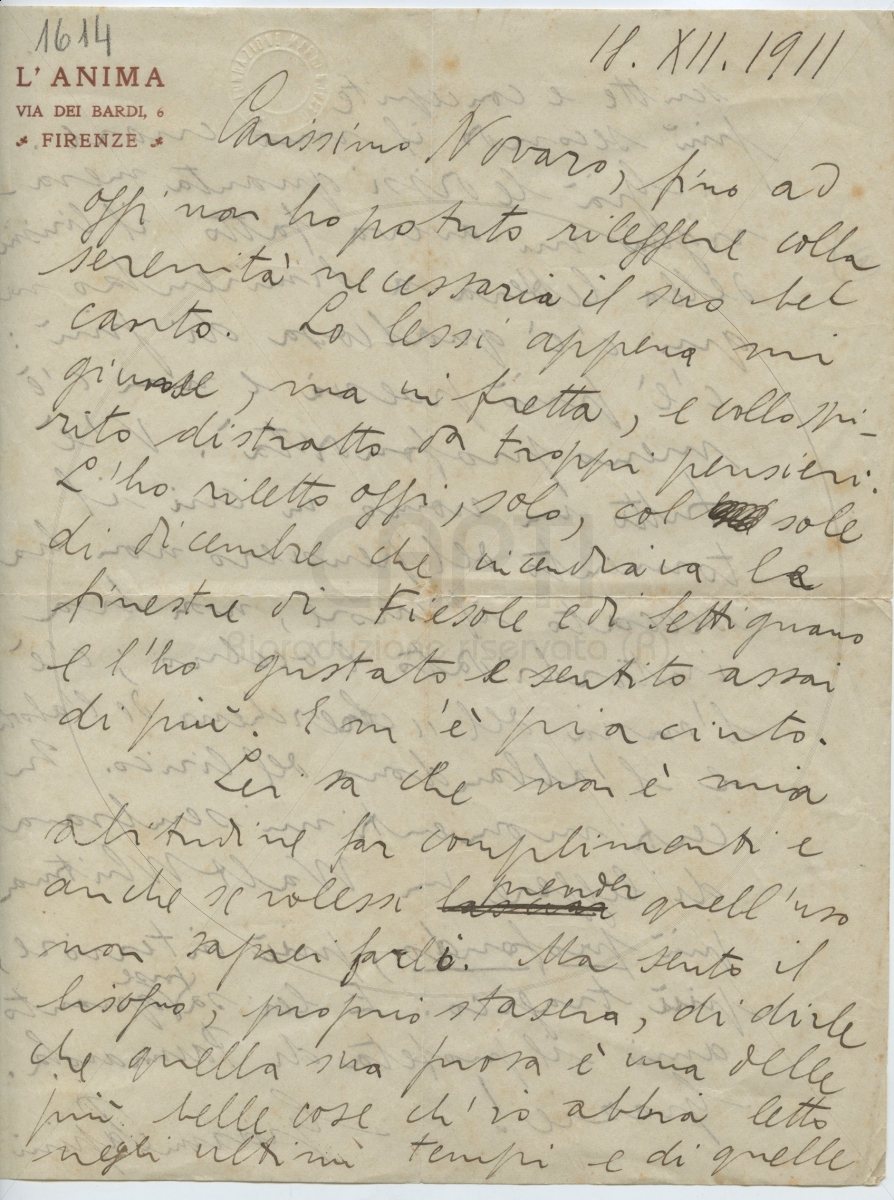 1614
L'ANIMA
VIA DEI BARDI, 6
FIRENZE
18. XII. 1911
Carissimo Novaro, fino ad
oggi non ho potuto rileggere colla
serenità necessaria il suo bel
canto. Lo lessi appena mi
giunse, ma in fretta, e collo spi-
rito distratto da troppi pensieri.
L'ho riletto oggi, solo, col sole
di dicembre che incendiava le
finestre di Fiesole e di Settignano
e l'ho gustato e sentito assai
di più. E m'è piaciuto.
Lei sa che non è mia
abitudine far complimenti e
anche se volessi prender quell'uso
non saprei farli. Ma sento il
bisogno, proprio stasera, di dirle
che quella sua prosa è forse una delle
più belle cose ch'io abbia letto
negli ultimi tempi e di quelle
CARTI
Riproduzione riservata (R)